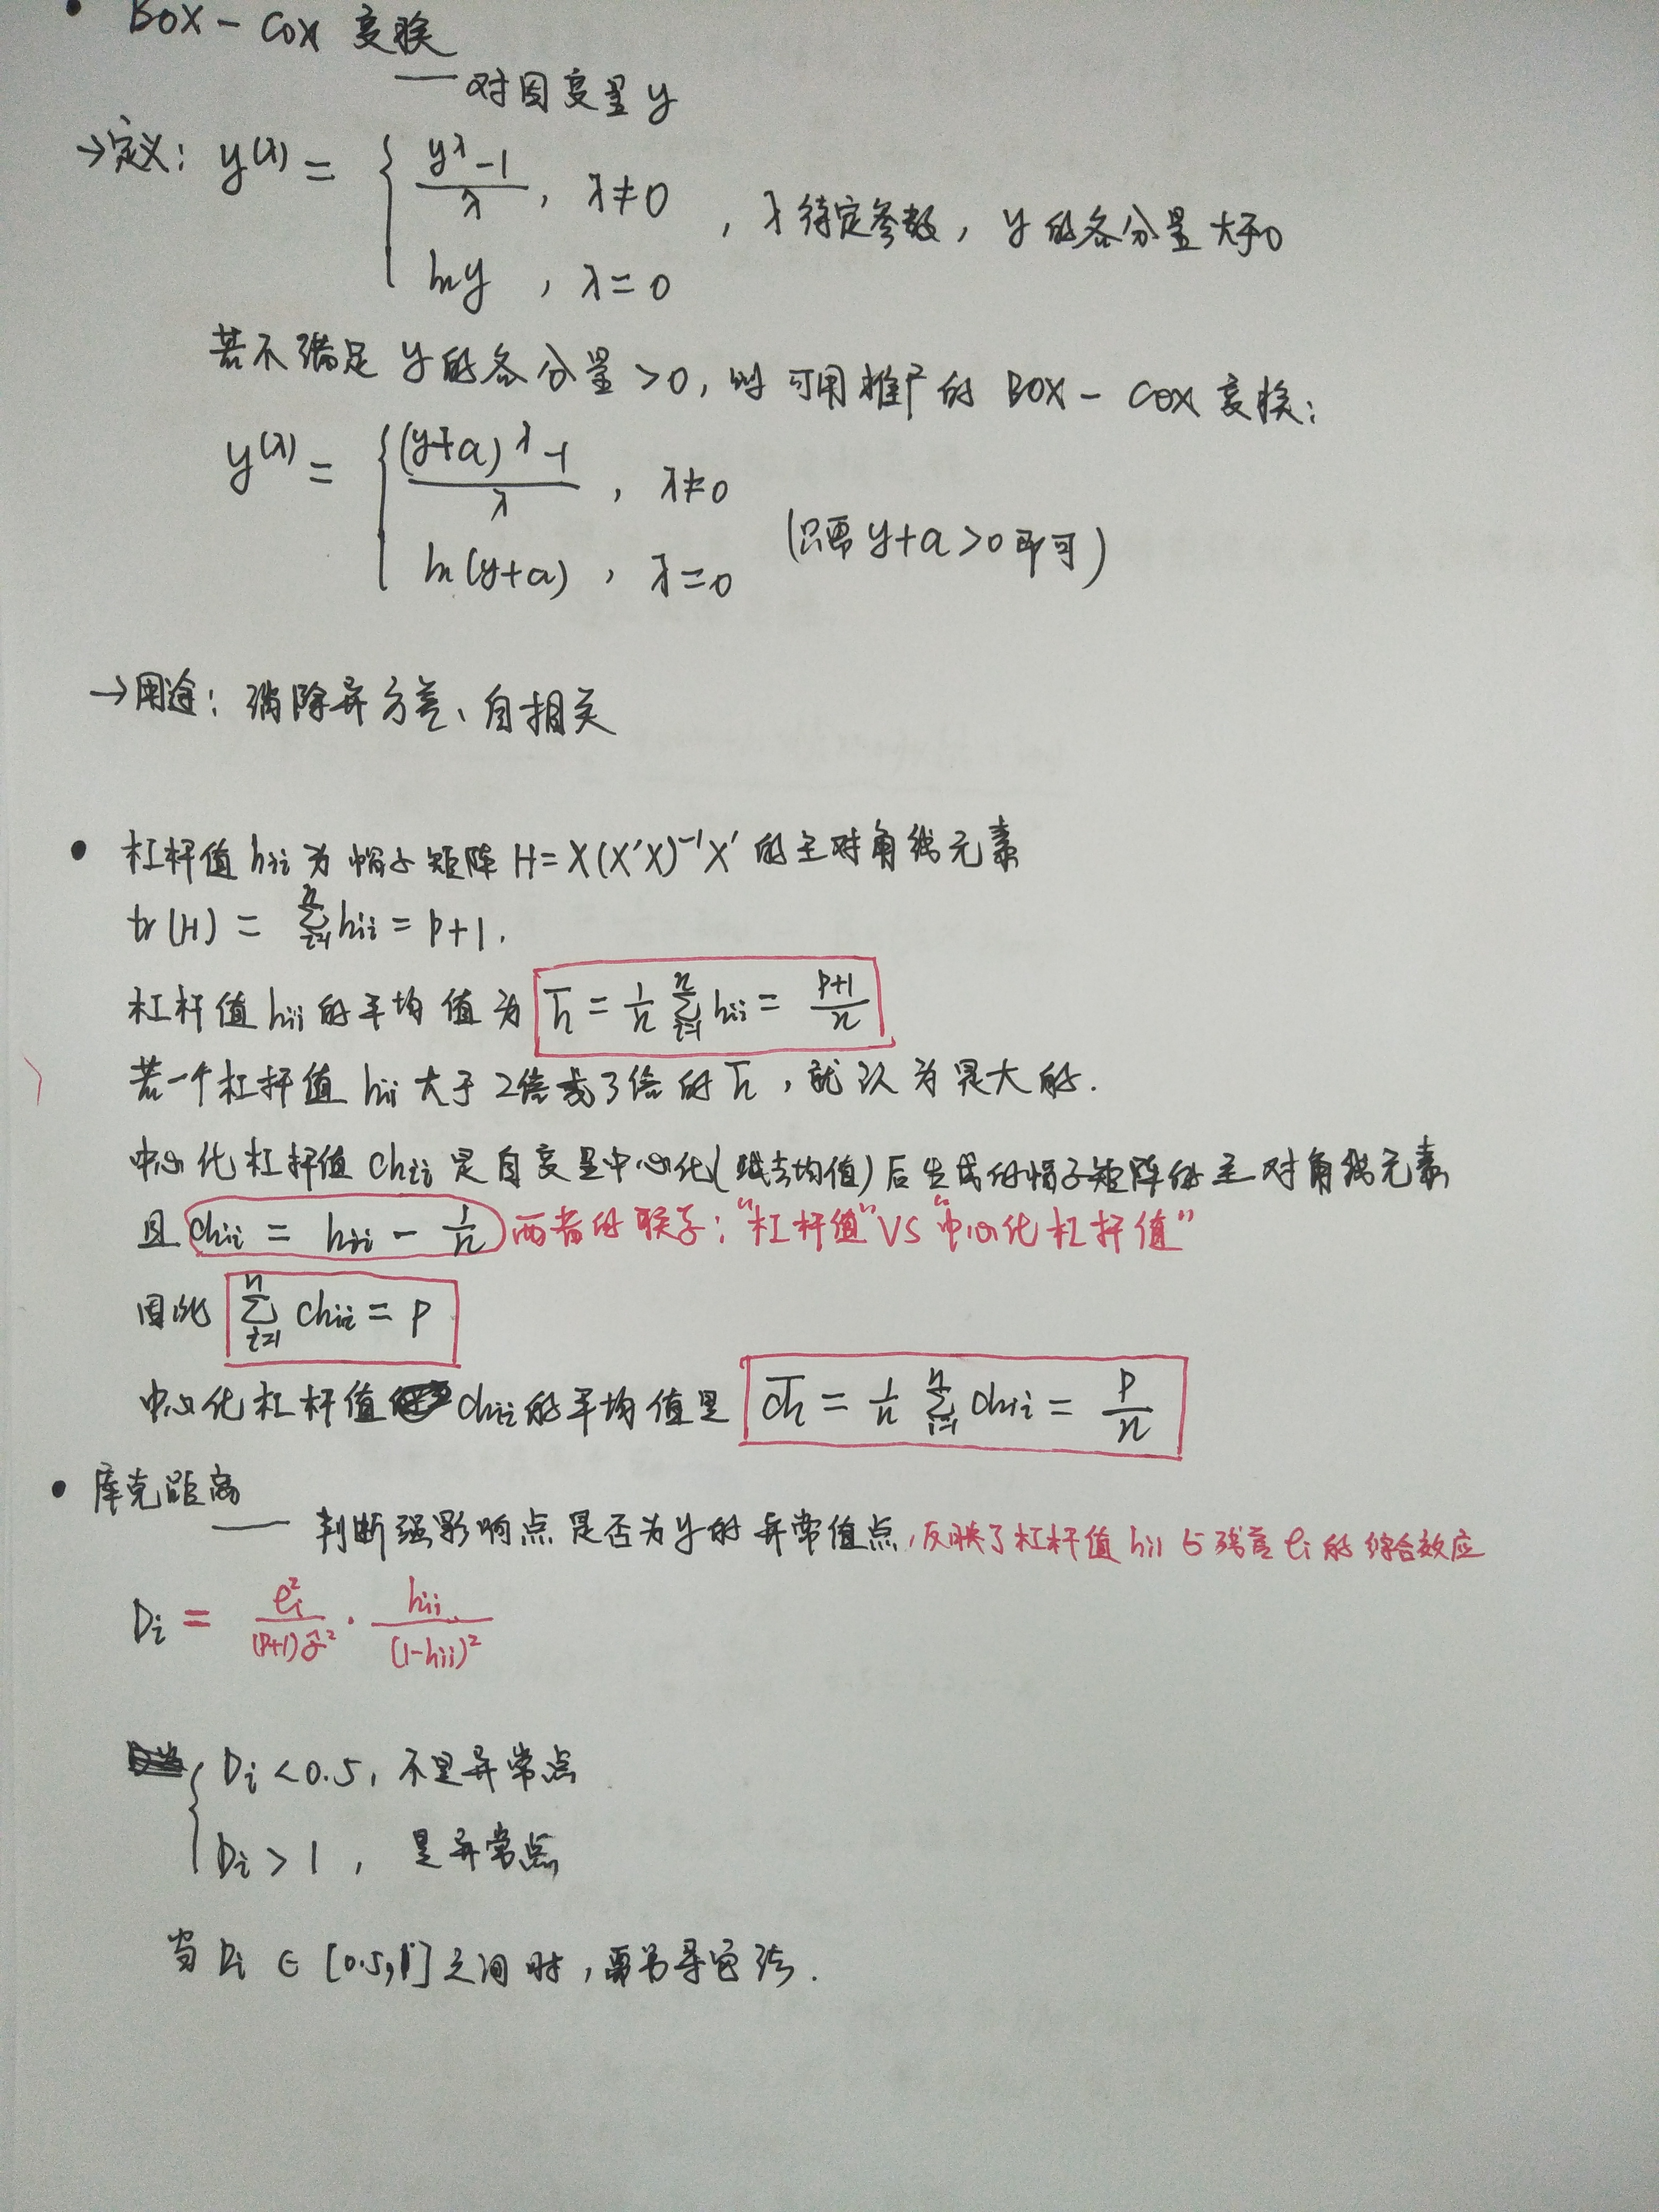 • BOX - COX 变换
—— 对因变量 y
→定义: y^(λ) = { (y^λ - 1)/λ , λ≠0
ln y , λ=0
, λ待定参数, y 的各分量大于0
若不满足 y 的各分量 >0, 则可用推广的 BOX - COX 变换:
y^(λ) = { ((y+a)^λ - 1)/λ , λ≠0
ln(y+a) , λ=0
(只需 y+a>0 即可)
→用途: 消除异方差、自相关
• 杠杆值 hii 为帽子矩阵 H=X(X'X)^-1X' 的主对角线元素
tr(H) = Σ_{i=1}^{n} hii = p+1.
杠杆值 hii 的平均值为 h̄ = 1/n Σ_{i=1}^{n} hii = (p+1)/n
若一个杠杆值 hii 大于 2倍或3倍的 h̄, 就认为是大的.
中心化杠杆值 chii 是自变量中心化(减去均值)后生成的帽子矩阵的主对角线元素
且 chii = hii - 1/n 两者的联系: "杠杆值" VS "中心化杠杆值"
因此 Σ_{i=1}^{n} chii = p
中心化杠杆值 chii 的平均值是 c̄h̄ = 1/n Σ_{i=1}^{n} chii = p/n
• 库克距离
—— 判断强影响点是否为y的异常值点, 反映了杠杆值 hii 与残差 ei 的综合效应
Di = ei²/((p+1)σ̂²) · hii/(1-hii)²
{ Di <0.5, 不是异常点
Di > 1, 是异常点
当 Di ∈ [0.5,1] 之间时, 需另寻它法.